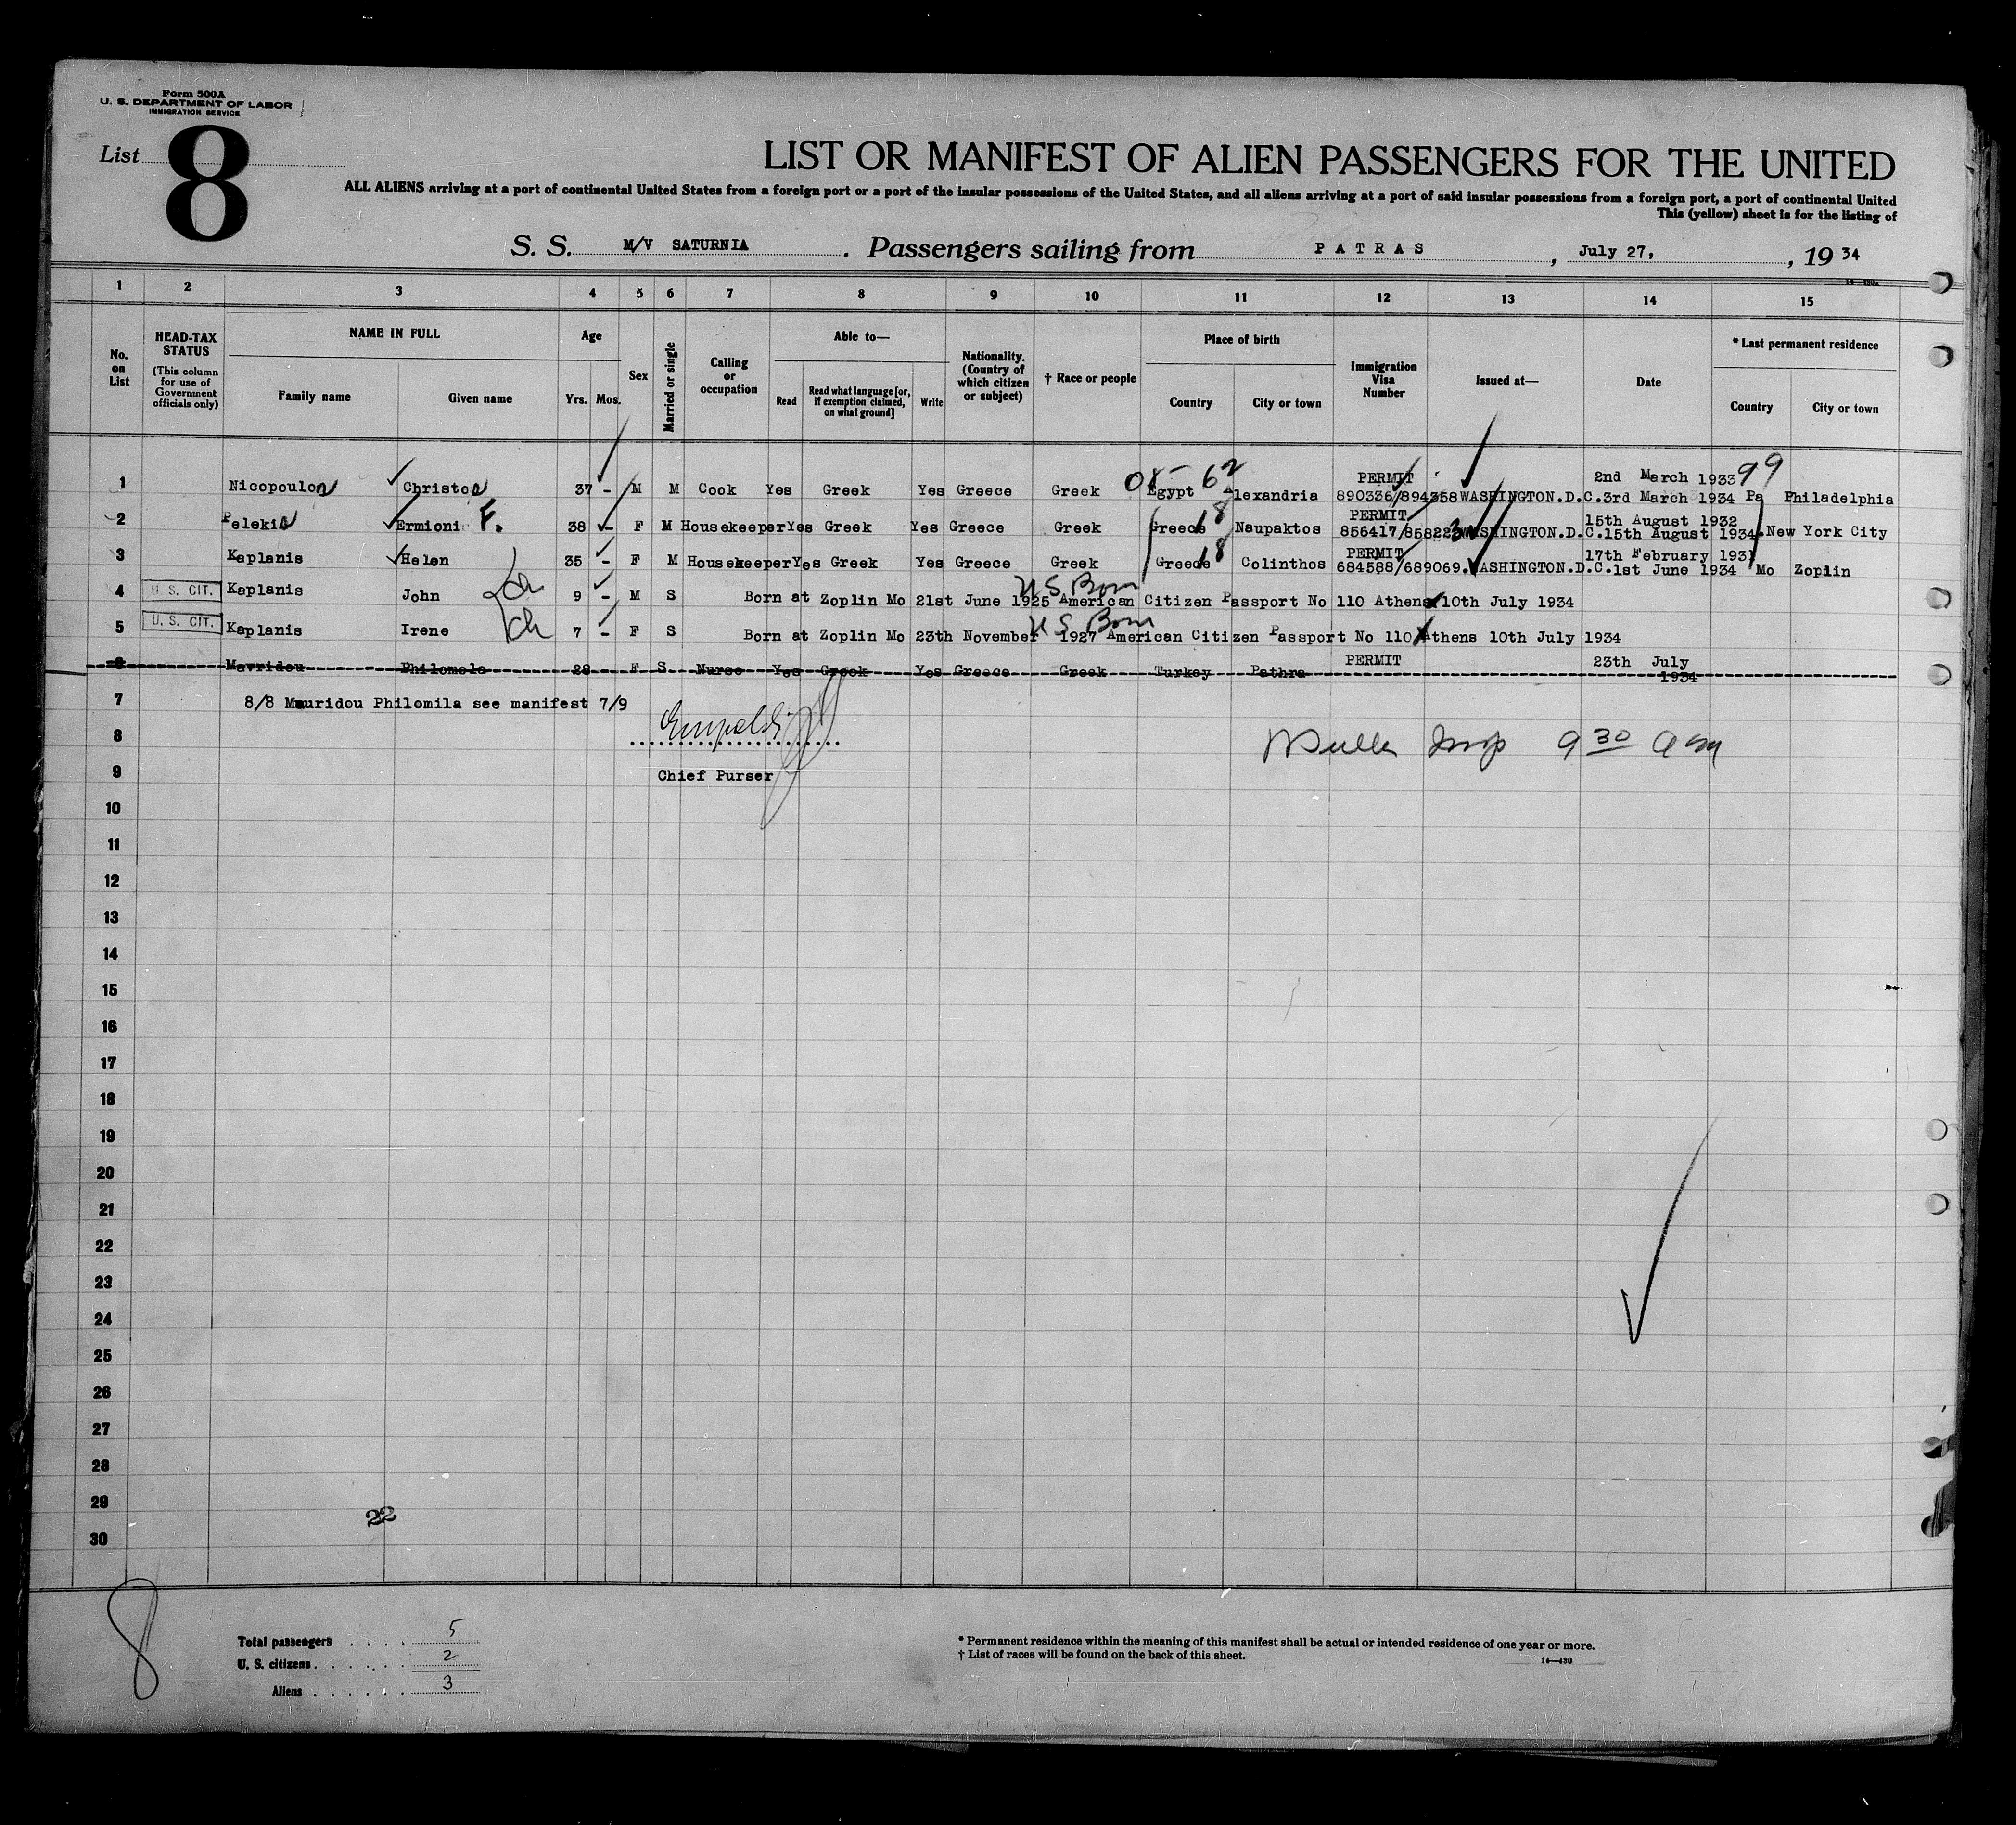 Form 500A
U. S. DEPARTMENT OF LABOR
IMMIGRATION SERVICE
List 8
LIST OR MANIFEST OF ALIEN PASSENGERS FOR THE UNITED
ALL ALIENS arriving at a port of continental United States from a foreign port or a port of the insular possessions of the United States, and all aliens arriving at a port of said insular possessions from a foreign port, a port of continental United
This (yellow) sheet is for the listing of
S. S. M/V SATURNIA . Passengers sailing from PATRAS , July 27, , 19 34
1 2 3 4 5 6 7 8 9 10 11 12 13 14 15
No. on List
HEAD-TAX STATUS (This column for use of Government officials only)
NAME IN FULL
Family name Given name
Age
Yrs. Mos.
Sex
Married or single
Calling or occupation
Able to—
Read Read what language [or, if exemption claimed, on what ground] Write
Nationality. (Country of which citizen or subject)
† Race or people
Place of birth
Country City or town
Immigration Visa Number
Issued at—
Date
* Last permanent residence
Country City or town
1 Nicopoulon Christos 37 - M M Cook Yes Greek Yes Greece Greek Egypt Alexandria PERMIT 890336/894358 WASHINGTON.D.C. 2nd March 1933 3rd March 1934 Pa Philadelphia
62
99
2 Pelekis Ermioni F. 38 - F M Housekeeper Yes Greek Yes Greece Greek Greece Naupaktos PERMIT 856417/858223 WASHINGTON.D.C. 15th August 1932 15th August 1934 New York City
18
3 Kaplanis Helen 35 - F M Housekeeper Yes Greek Yes Greece Greek Greece Colinthos PERMIT 684588/689069. WASHINGTON.D.C. 17th February 1931 1st June 1934 Mo Zoplin
18
4 U. S. CIT. Kaplanis John ch 9 - M S Born at Zoplin Mo 21st June 1925 American Citizen Passport No 110 Athens 10th July 1934
U.S. Born
5 U. S. CIT. Kaplanis Irene ch 7 - F S Born at Zoplin Mo 23th November 1927 American Citizen Passport No 110 Athens 10th July 1934
U.S. Born
6 Mavridou Philomela 28 F S Nurse Yes Greek Yes Greece Greek Turkey Pathra PERMIT 23th July 1934
7 8/8 Mauridou Philomila see manifest 7/9
8
9 Chief Purser
9 30 am
10
11
12
13
14
15
16
17
18
19
20
21
22
23
24
25
26
27
28
29
30
22
8
Total passengers . . . . 5
U. S. citizens . . . . . . 2
Aliens . . . . . . 3
* Permanent residence within the meaning of this manifest shall be actual or intended residence of one year or more.
† List of races will be found on the back of this sheet.
14—430